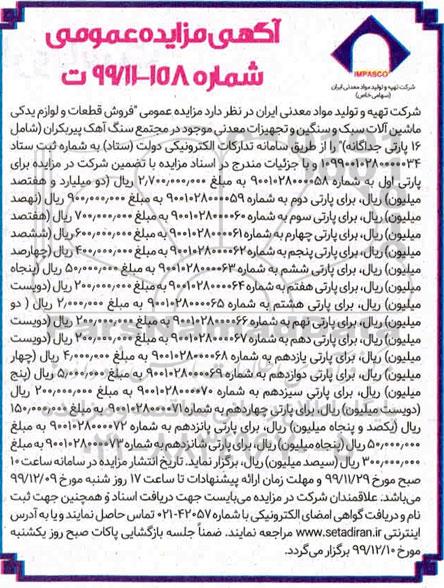 آگهی مزایده عمومی
شماره ۱۵۸-۹۹/۱۱ ت
IMPASCO
شرکت تهیه و تولید مواد معدنی ایران
(سهامی خاص)
شرکت تهیه و تولید مواد معدنی ایران در نظر دارد مزایده عمومی "فروش قطعات و لوازم یدکی
ماشین آلات سبک و سنگین و تجهیزات معدنی موجود در مجتمع سنگ آهک پیربکران (شامل
۱۶ پارتی جداگانه)" را از طریق سامانه تدارکات الکترونیکی دولت (ستاد) به شماره ثبت ستاد
۱۰۹۹۰۰۱۰۲۸۰۰۰۰۳۴ و با جزئیات مندرج در اسناد مزایده با تضمین شرکت در مزایده برای
پارتی اول به شماره ۹۰۰۱۰۲۸۰۰۰۰۵۸ به مبلغ ۲,۷۰۰,۰۰۰,۰۰۰ ریال (دو میلیارد و هفتصد
میلیون) ریال، برای پارتی دوم به شماره ۹۰۰۱۰۲۸۰۰۰۰۵۹ به مبلغ ۹۰۰,۰۰۰,۰۰۰ ریال (نهصد
میلیون) ریال، برای پارتی سوم به شماره ۹۰۰۱۰۲۸۰۰۰۰۶۰ به مبلغ ۷۰۰,۰۰۰,۰۰۰ ریال (هفتصد
میلیون) ریال، برای پارتی چهارم به شماره ۹۰۰۱۰۲۸۰۰۰۰۶۱ به مبلغ ۶۰۰,۰۰۰,۰۰۰ ریال (ششصد
میلیون) ریال، برای پارتی پنجم به شماره ۹۰۰۱۰۲۸۰۰۰۰۶۲ به مبلغ ۴۰۰,۰۰۰,۰۰۰ ریال (چهارصد
میلیون) ریال، برای پارتی ششم به شماره ۹۰۰۱۰۲۸۰۰۰۰۶۳ به مبلغ ۵۰,۰۰۰,۰۰۰ ریال (پنجاه
میلیون) ریال، برای پارتی هفتم به شماره ۹۰۰۱۰۲۸۰۰۰۰۶۴ به مبلغ ۲۰۰,۰۰۰,۰۰۰ ریال (دویست
میلیون) ریال، برای پارتی هشتم به شماره ۹۰۰۱۰۲۸۰۰۰۰۶۵ به مبلغ ۲,۰۰۰,۰۰۰ ریال ( دو
میلیون) ریال، برای پارتی نهم به شماره ۹۰۰۱۰۲۸۰۰۰۰۶۶ به مبلغ ۲۰۰,۰۰۰,۰۰۰ ریال (دویست
میلیون) ریال، برای پارتی دهم به شماره ۹۰۰۱۰۲۸۰۰۰۰۶۷ به مبلغ ۲۰۰,۰۰۰,۰۰۰ ریال (دویست
میلیون) ریال، برای پارتی یازدهم به شماره ۹۰۰۱۰۲۸۰۰۰۰۶۸ به مبلغ ۴,۰۰۰,۰۰۰ ریال (چهار
میلیون) ریال، برای پارتی دوازدهم به شماره ۹۰۰۱۰۲۸۰۰۰۰۶۹ به مبلغ ۵,۰۰۰,۰۰۰ ریال (پنج
میلیون) ریال، برای پارتی سیزدهم به شماره ۹۰۰۱۰۲۸۰۰۰۰۷۰ به مبلغ ۲۰۰,۰۰۰,۰۰۰ ریال
(دویست میلیون) ریال، برای پارتی چهاردهم به شماره ۹۰۰۱۰۲۸۰۰۰۰۷۱ به مبلغ ۱۵۰,۰۰۰,۰۰۰
ریال (یکصد و پنجاه میلیون) ریال، برای پارتی پانزدهم به شماره ۹۰۰۱۰۲۸۰۰۰۰۷۲ به مبلغ
۵۰,۰۰۰,۰۰۰ ریال (پنجاه میلیون) ریال، برای پارتی شانزدهم به شماره ۹۰۰۱۰۲۸۰۰۰۰۷۳ به مبلغ
۳۰۰,۰۰۰,۰۰۰ ریال (سیصد میلیون) ریال، برگزار نماید. تاریخ انتشار مزایده در سامانه ساعت ۱۰
صبح مورخ ۹۹/۱۱/۲۹ و مهلت زمان ارائه پیشنهادات تا ساعت ۱۷ روز شنبه مورخ ۹۹/۱۲/۰۹
می‌باشد. علاقمندان شرکت در مزایده می‌بایست جهت دریافت اسناد و همچنین جهت ثبت
نام و دریافت گواهی امضای الکترونیکی با شماره ۴۲۰۵۷-۰۲۱ تماس حاصل نمایند و یا به آدرس
اینترنتی www.setadiran.ir مراجعه نمایند. ضمناً جلسه بازگشایی پاکات صبح روز یکشنبه
مورخ ۹۹/۱۲/۱۰ برگزار می‌گردد.